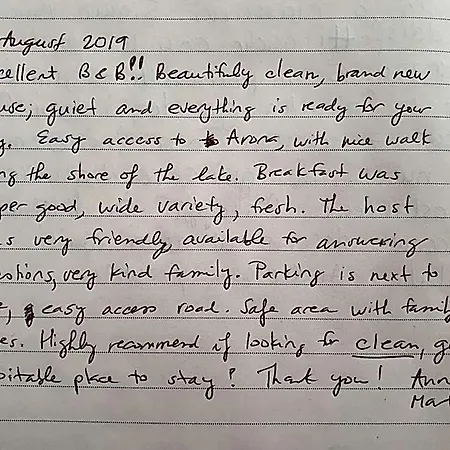 August 2019
cellent B & B!! Beautifully clean, brand new
use; quiet and everything is ready for your
y. Easy access to Arona, with nice walk
ng the shore of the lake. Breakfast was
per good, wide variety, fresh. The host
s very friendly, available for answering
estions, very kind family. Parking is next to
e, easy access road. Safe area with family
es. Highly recommend if looking for clean, q
pitable place to stay! Thank you! Ann
Mar